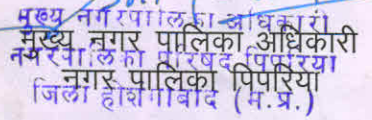 मुख्य नगरपालिका अधिकारी
मुख्य नगर पालिका अधिकारी
नगरपालिका परिषद पिपरिया
नगर पालिका पिपरिया
जिला होशंगाबाद (म.प्र.)